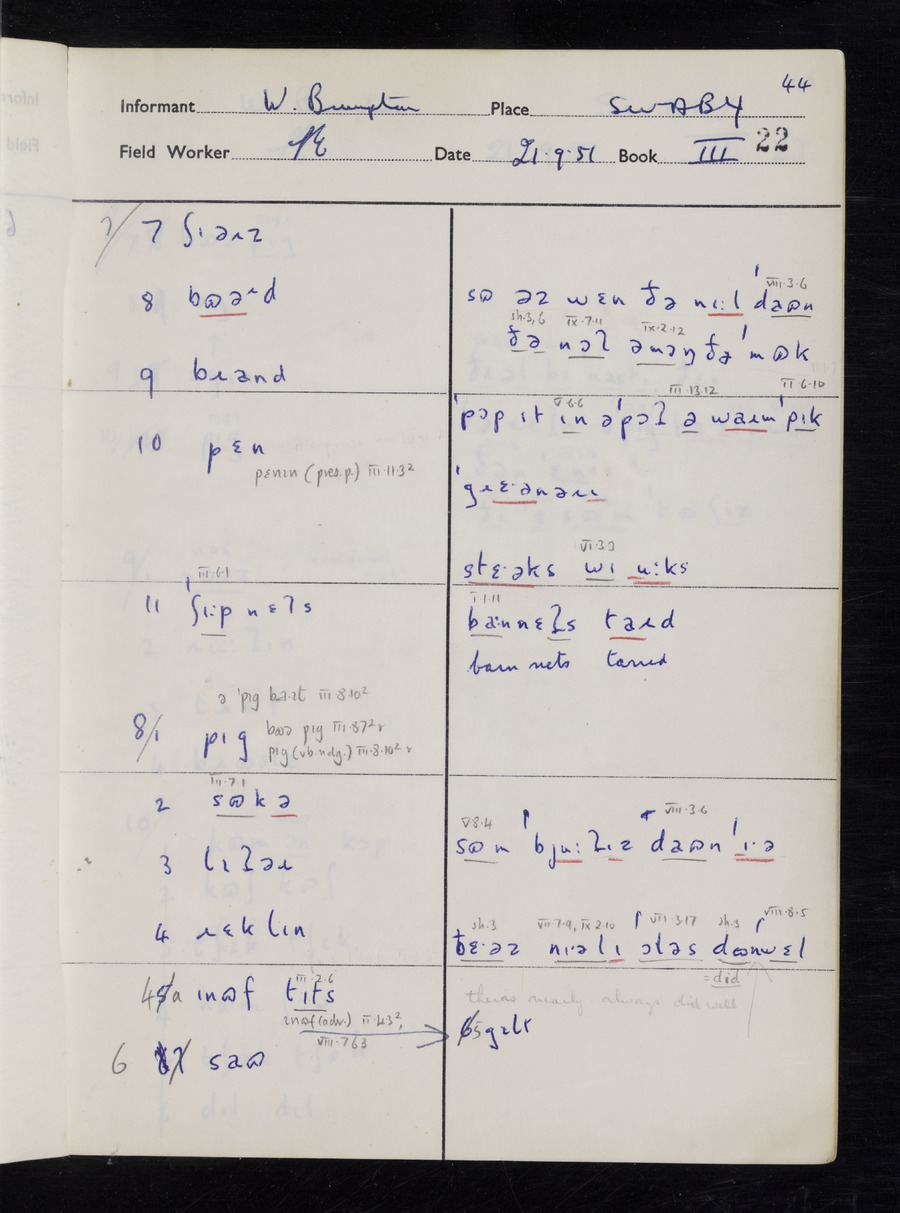 44
Informant W. Brumpton Place SWABY
Field Worker Date 21.9.51 Book III 22
7/ 7 ʃɪəɹz
8 bʊəɹd
9 bɹand
10 pɛn
pɛnɪn (pres.p.) III.11.3²
III.6.1
11 ʃɪ:p nɛʔs
ə 'pɪg III.8.10²
8/1 pɪg
III.7.1
2 sʊkə
3 lɪʔəɹ
4 ɹɛklɪn
III.2.6
4a ɪnʊf tɪts
ɪnʊf (adv.) II.4.3²,
VIII.7.6 3
6 saʊ
VIII.3.6
sʊ əz wɛn ðə nɪ:l daʊn
sh.3,6 IX.7.11 IX.2.12
ðə nɔʔ əmaŋ ðə 'mʊk
III.13.12 II 6.10
V.6.6
'pɔp ɪt ɪn ə'pɔʔ ə waɹm 'pɪk
'gɹɛ·ənəɹɪ
VI.3 3
stɛ·əks wɪ u:ks
I.1.11
ba:nnɛʔs taɹd
barn nets tarred
V 8.4 VIII.3.6
sʊm 'bju:ʔɪz daʊn 'ɪ·ə
sh.3 VII.7.9, IX 2.10 VII.3.17 sh.3 VIII.8.5
ðɛ·əz nɪəlɪ ɔləs dʊnwɛl
= did
theirs nearly always did well
5 gɪlt